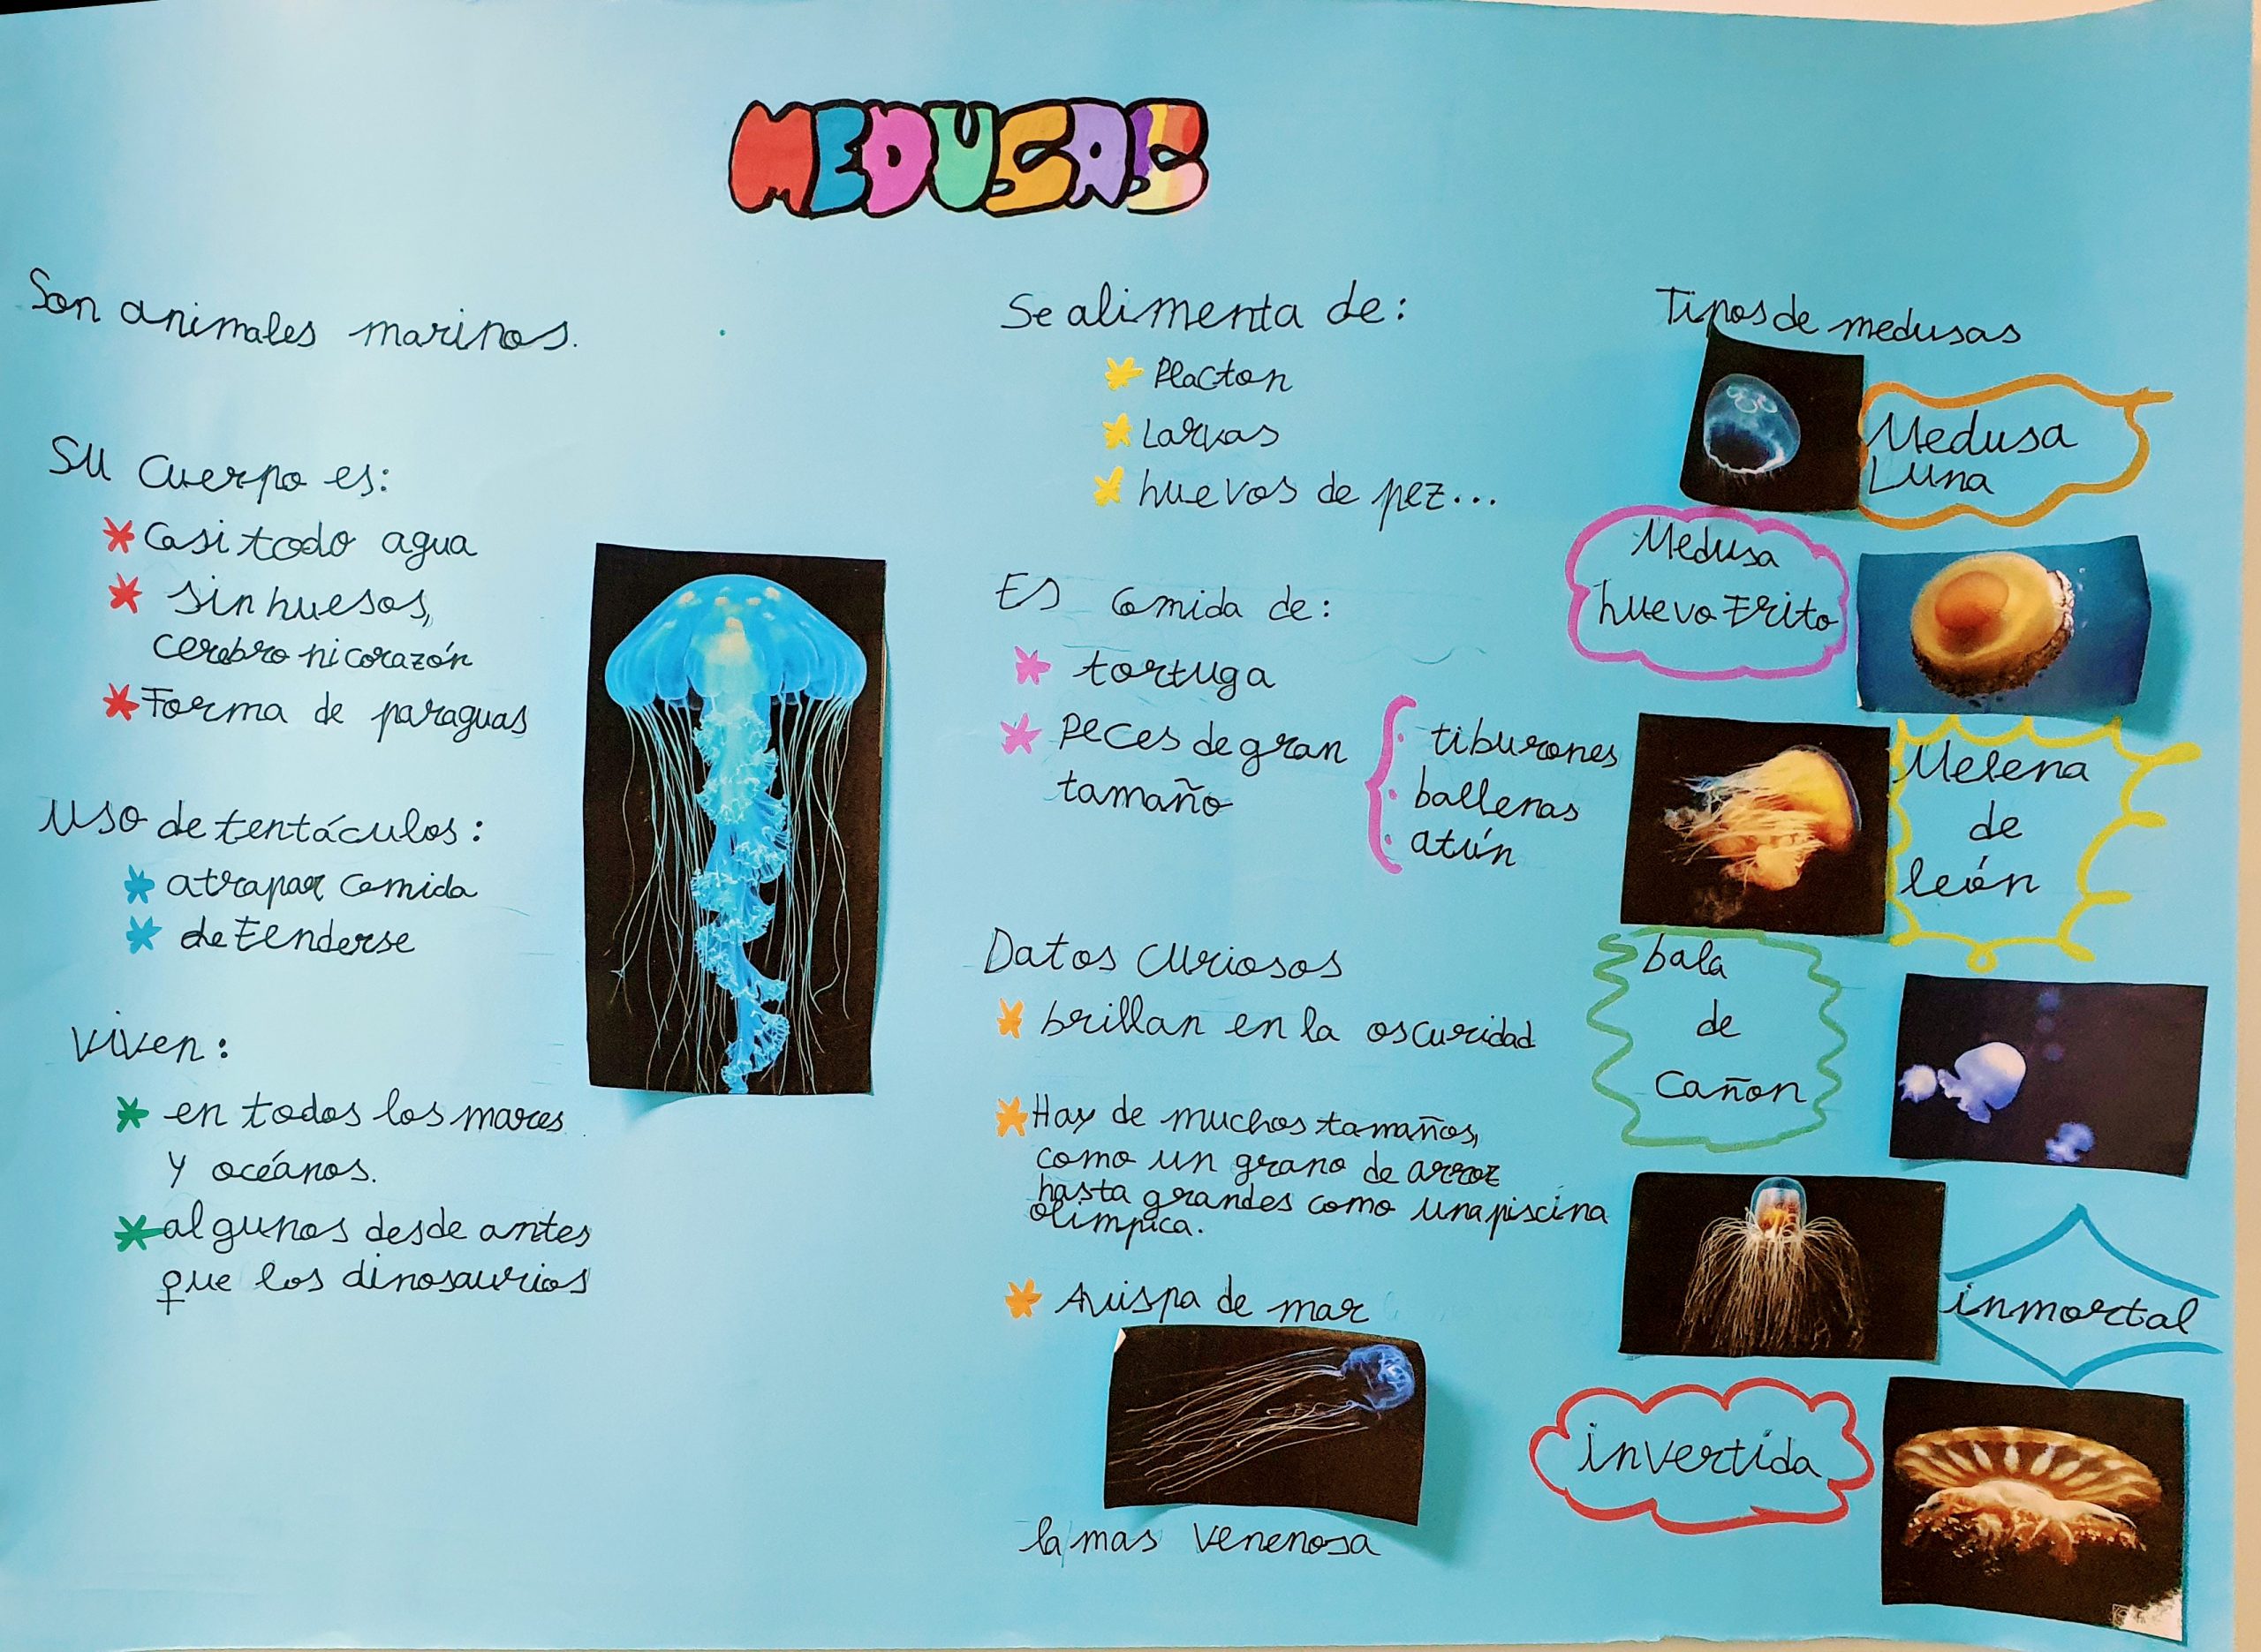 MEDUSAS
Son animales marinos.
Su cuerpo es:
Casi todo agua
sin huesos,
cerebro ni corazón
Forma de paraguas
Uso de tentáculos:
atrapar comida
defenderse
Viven:
en todos los mares
y océanos.
algunos desde antes
que los dinosaurios
Se alimenta de:
Placton
Larvas
huevos de pez...
Es comida de:
tortuga
Peces de gran
tamaño
tiburones
ballenas
atún
Datos curiosos
brillan en la oscuridad
Hay de muchos tamaños,
como un grano de arroz
hasta grandes como una piscina
olimpica.
Avispa de mar
la mas venenosa
Tipos de medusas
Medusa
Luna
Medusa
huevo Frito
Melena
de
león
bala
de
cañon
inmortal
invertida